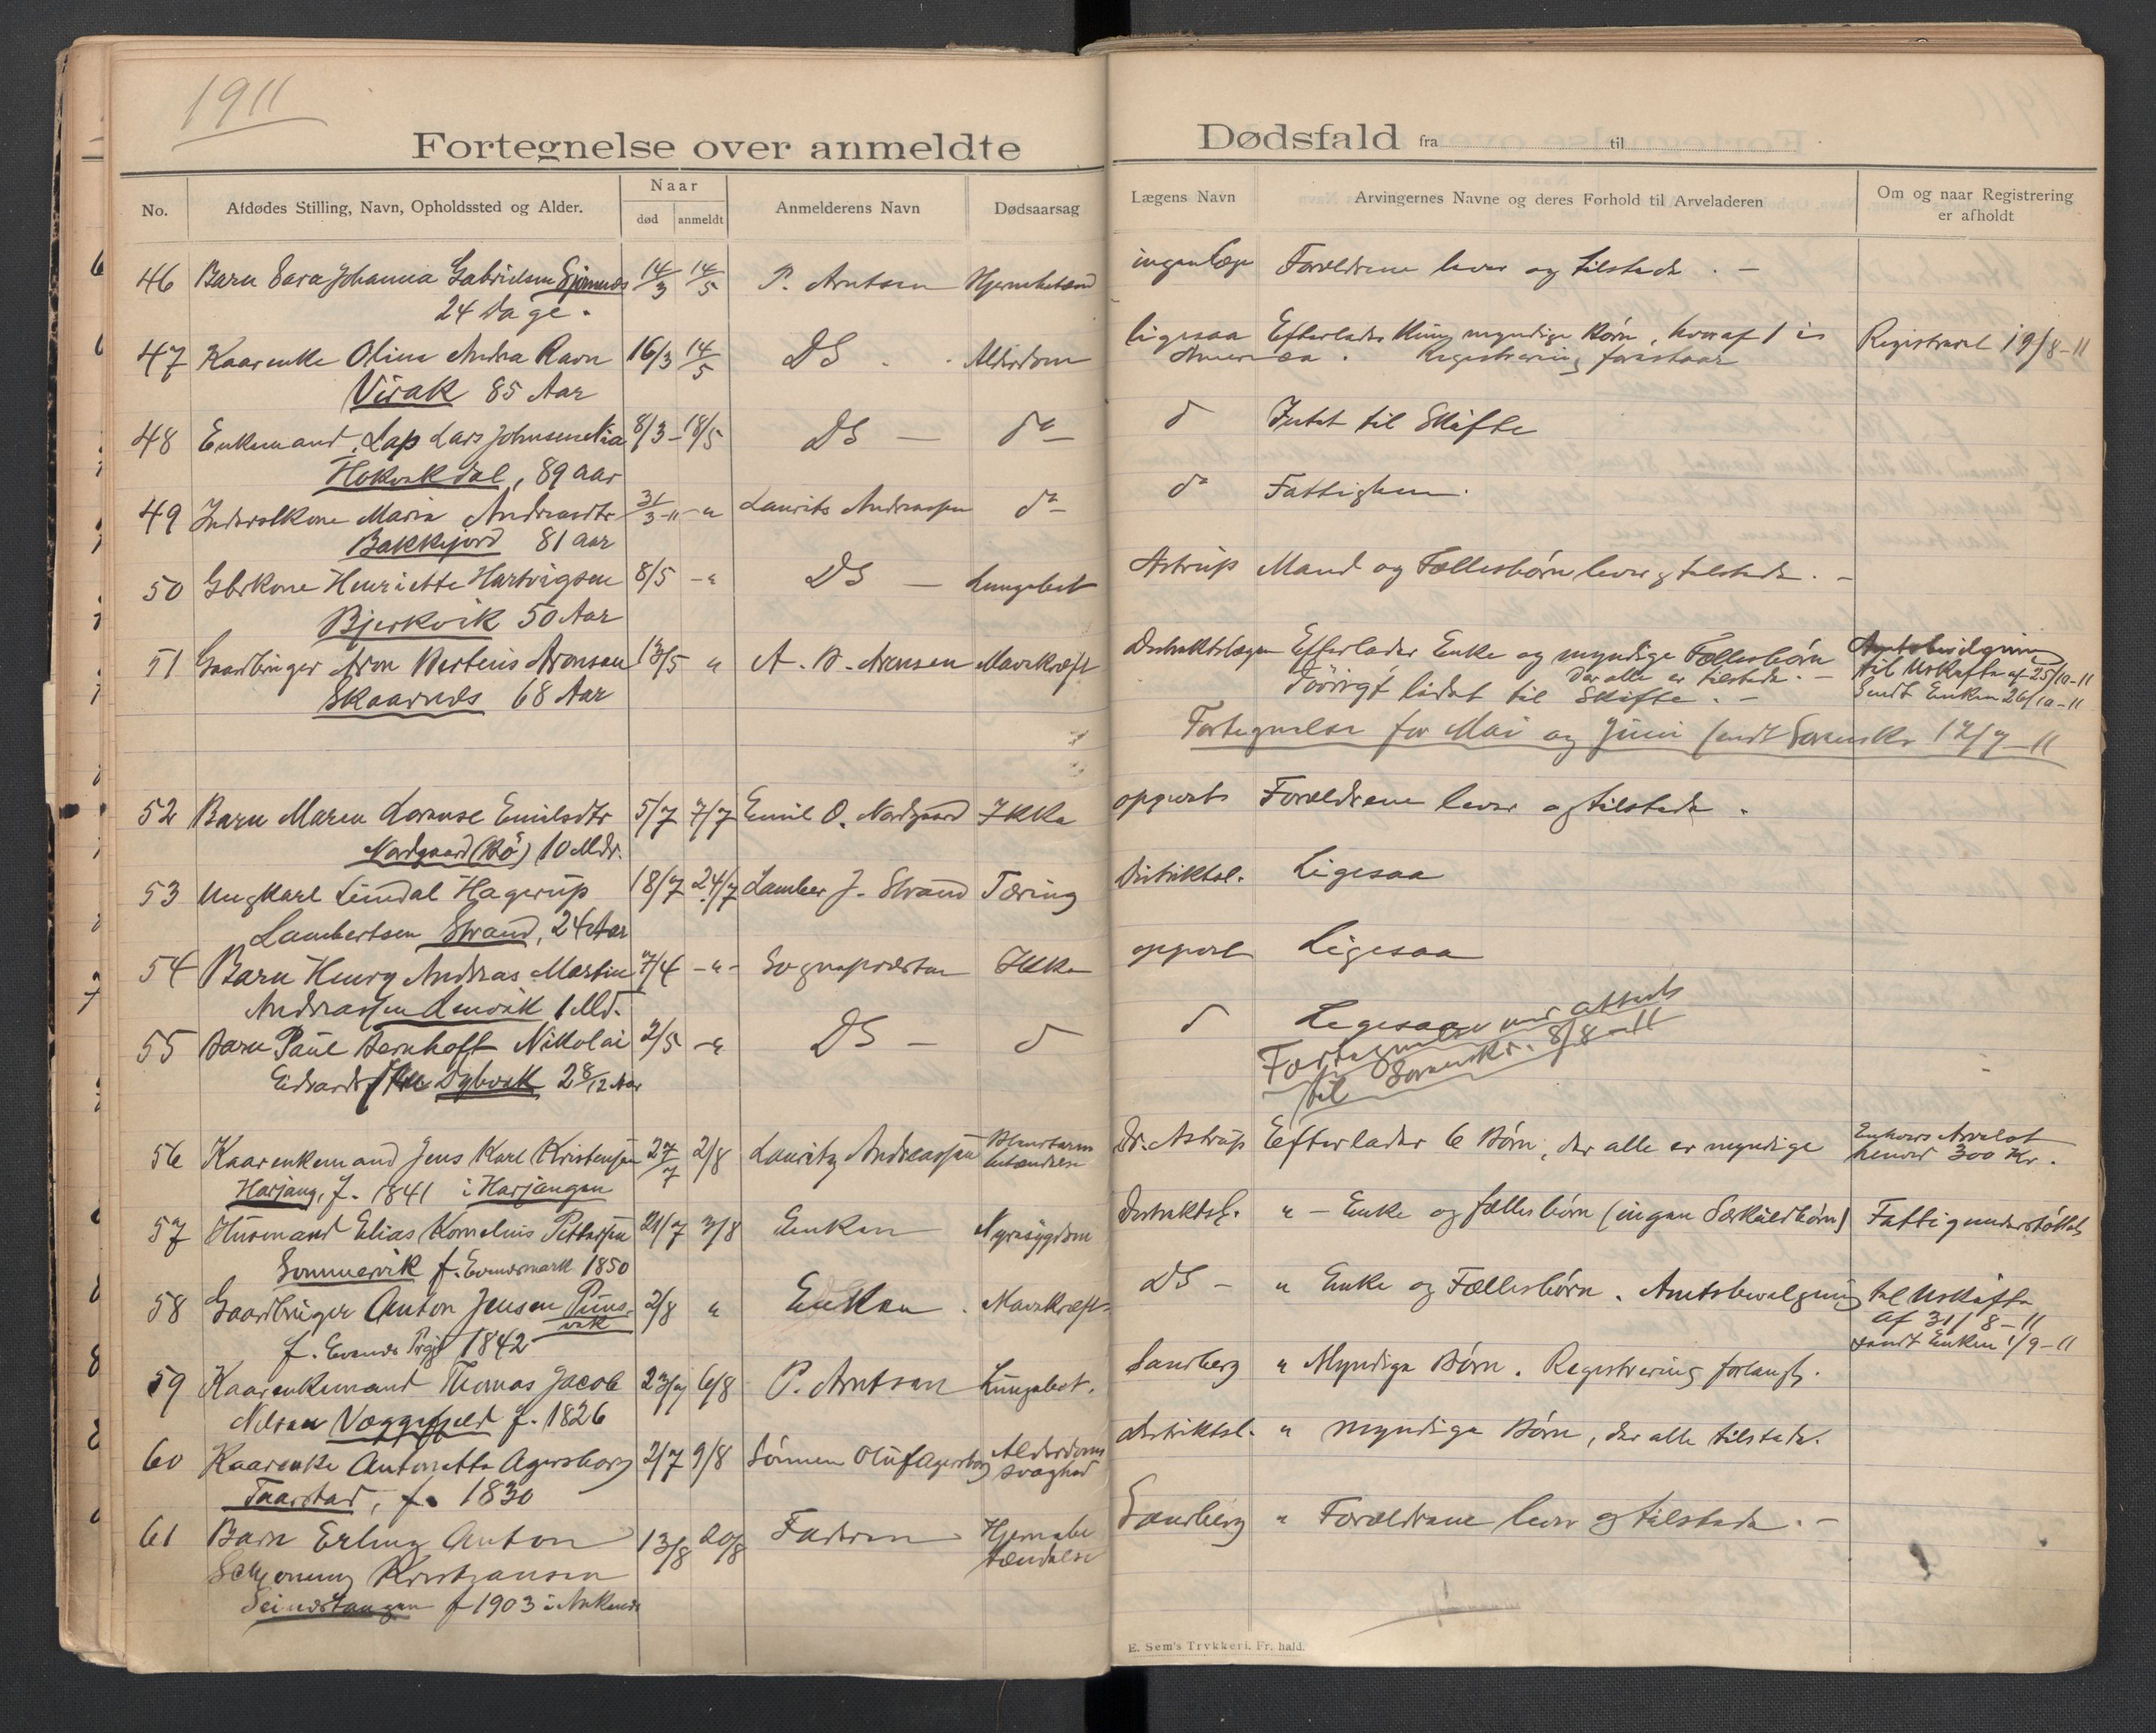 1911
Fortegnelse over anmeldte
No.
Afdødes Stilling, Navn, Opholdssted og Alder.
Naar
død
anmeldt
Anmelderens Navn
Dødsaarsag
46 Barn Sara Johanna 14/3 14/5 P. Arntsen
24 Dage.
47 Kaarenke Olina Andrea Ravn 16/3 14/5 DS - Alderdom
Virak 85 Aar
48 Enkemand, Lap Lars Johnsen 8/3 - 18/5 DS — do
89 aar
49 Maria Andreasdtr 31/3-11 - " Laurits Andreassen do
Bakkejord 81 aar
50 Gbrkone Henriette Hartvigsen 8/5 - " DS — Lungebet
Bjerkvik 50 Aar
51 Gaardbruger Aron Berteus Aronsen 13/5 " A. B. Arensen Mavekræft
Skaarnes 68 Aar
52 Barn Maren Lovense Emilsdtr 5/7 7/7 Emil O. Nordgaard Ikke
Nordgaard (Bø) 10 Mdr.
53 Ungkarl Lindal Hagerup 18/7 24/7 Lamber J. Strand Tæring
Lambertsen Strand, 24 Aar
54 Barn Henry Andreas Martin 7/4 - " - Sognepræsten Ikke
Andreassen Lenvik 1 Md.
55 Barn Paul Bernhoft Nikolai 2/5 - " DS — do
Dybvik 2 8/12 Aar
56 Kaarenkemand Jens Karl Kristensen 27/7 2/8 Lauritz Andreassen
Harjang, f. 1841 i Harjangen
57 Husmand Elias Kornelius Pettersen 21/7 3/8 Enken Nyresygdom
Sommervik f. Evenesmark 1850
58 Gaardbruger Anton Jensen Punsvik 2/8 " Enken Mavekræft
f. Evenes Prgj 1842
59 Kaarenkemand Thomas Jacob 23/7 6/8 P. Arntsen Lungebet.
Nilsen Væggefjeld f. 1826
60 Kaarenke Antonette Agersborg 2/7 9/8 Sønnen Oluf Agersborg Alderdoms
svaghed
Taarstad, f. 1830
61 Barn Erling Anton 13/8 20/8 Faderen Hjernebe
tændelse
Schjonning Kristiansen
f 1903 i Ankenes
Dødsfald fra til
Lægens Navn
Arvingernes Navne og deres Forhold til Arveladeren
Om og naar Registrering
er afholdt
ingen Læge Forældrene lever og tilstede. —
ligesaa Efterlader kun myndige Børn, hvoraf 1 i Registreret 19/8-11
Amerika. Registrering forestaar
do Intet til Skifte
do Fattiglem.
Astrup Mand og Fællesbørn lever og tilstede. —
Distriktslægen Efterlader Enke og myndige Fællesbørn Amtsbevilgning
der alle er tilstede. — til Uskifte af 25/10-11
Forøvrigt lidet til Skifte. — Sendt Enken 26/10-11
Fortegnelse for Mai og Juni sendt Sorenskr 12/7-11
Forældrene lever og tilstede.
Distriktsl. Ligesaa
Ligesaa
do Ligesaa
Fortegnelse
til Sorenskr. 8/8-11
Dr. Astrup Efterlader 6 Børn, der alle er myndige Enhvers Arvelot
300 Kr.
Distriktsl. " — Enke og fællesbørn (ingen Særkuldbørn) Fattigunderstøttet
DS — " Enke og Fællesbørn. Amtsbevilgning til Uskifte
af 31/8-11
sendt Enken 1/9-11
Sandberg " Myndige Børn. Registrering forlangt.
distriktsl. " myndige Børn, der alle tilstede.
Sandberg " Forældrene lever og tilstede. —
E. Sem's Trykkeri. Fr. hald.